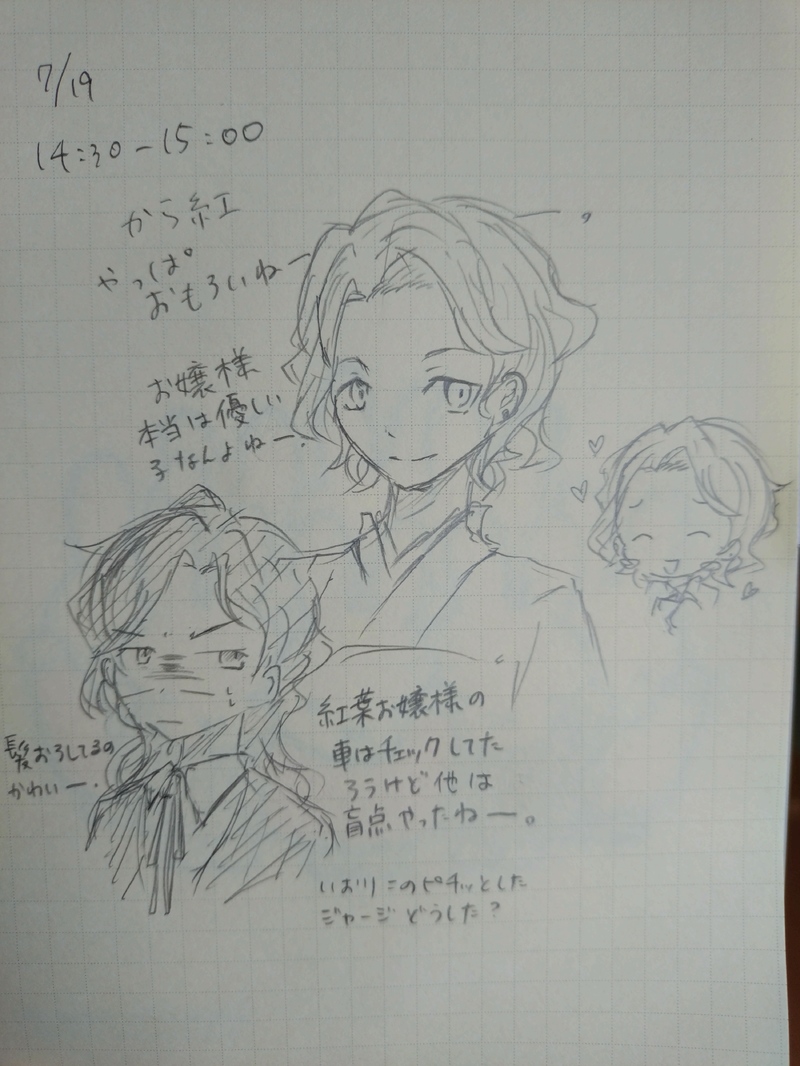 7/19
14:30-15:00
から紅
やっぱ
おもろいねー
お嬢様
本当は優しい
子なんよねー.
髪おろしてるの
かわいー.
紅葉お嬢様の
車はチェックしてた
ろうけど他は
盲点やったねー。
いおりこのピチッとした
ジャージどうした?